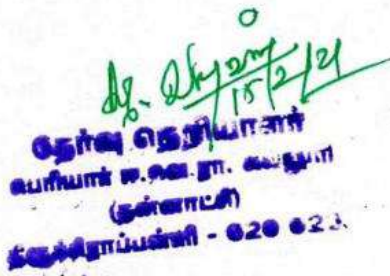 15/2/21
தேர்வு நெறியாளர்
பெரியார் ஈ.வெ.ரா. கல்லூரி
(தன்னாட்சி)
திருச்சிராப்பள்ளி - 620 023.